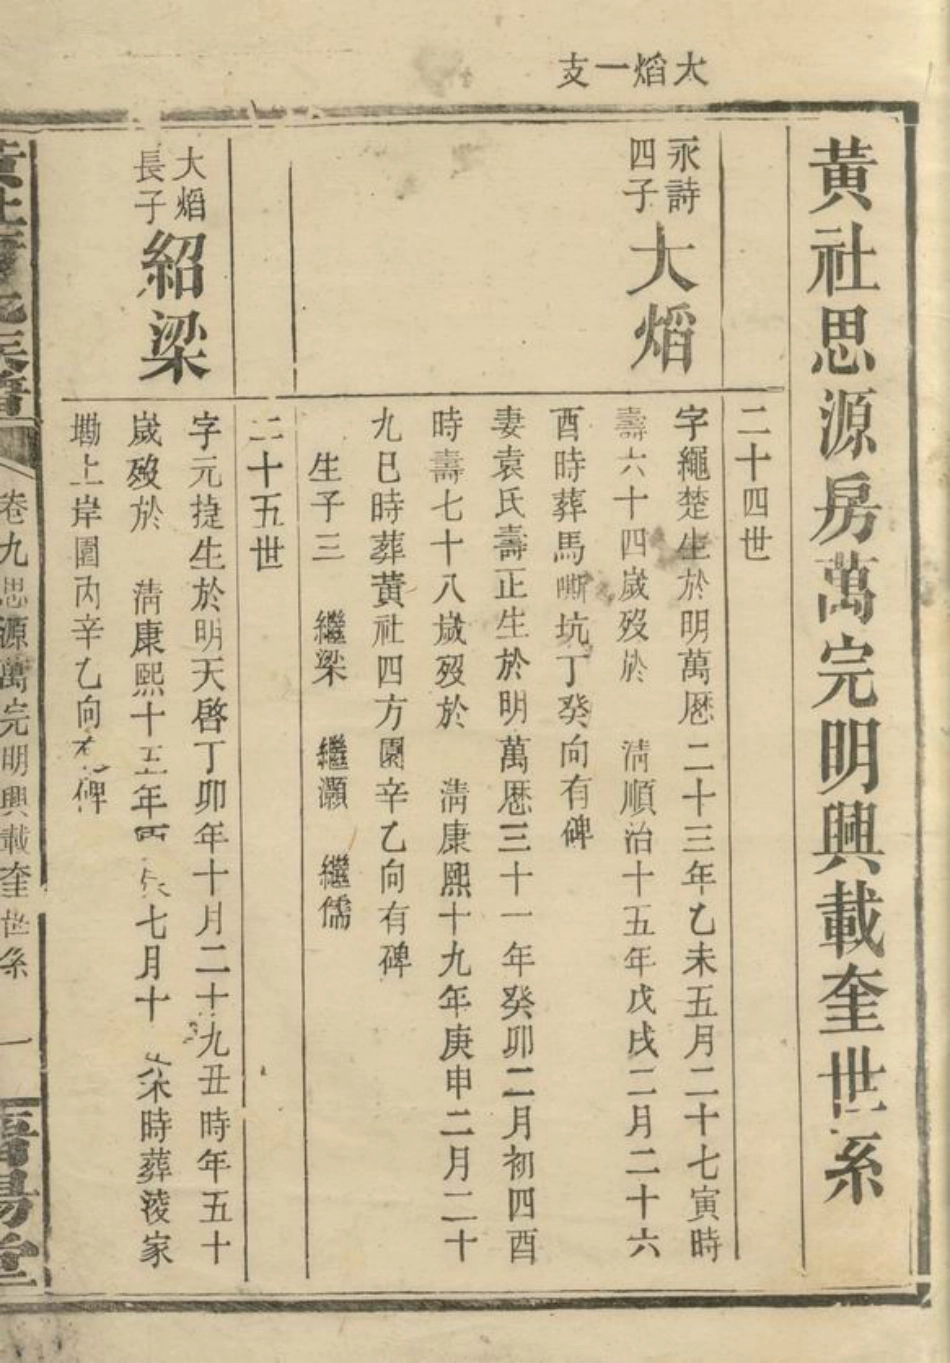 大熖一支
黃社思源房萬完明興載奎世系
二十四世
永詩
四子
大熖
字繩楚生於明萬厯二十三年乙未五月二十七寅時
壽六十四歲歿於 清順治十五年戊戌二月二十六
酉時葬馬嘶坑丁癸向有碑
妻袁氏壽正生於明萬厯三十一年癸卯二月初四酉
時壽七十八歲歿於 清康熙十九年庚申二月二十
九巳時葬黃社四方園辛乙向有碑
生子三 繼梁 繼灝 繼儒
二十五世
大熖
長子
紹梁
字元捷生於明天啓丁卯年十月二十九丑時年五十
歲歿於 清康熙十五年丙辰七月十 未時葬淩家
墈上岸園丙辛乙向有碑
卷九思源萬完明興載奎世系 一
晉陽堂